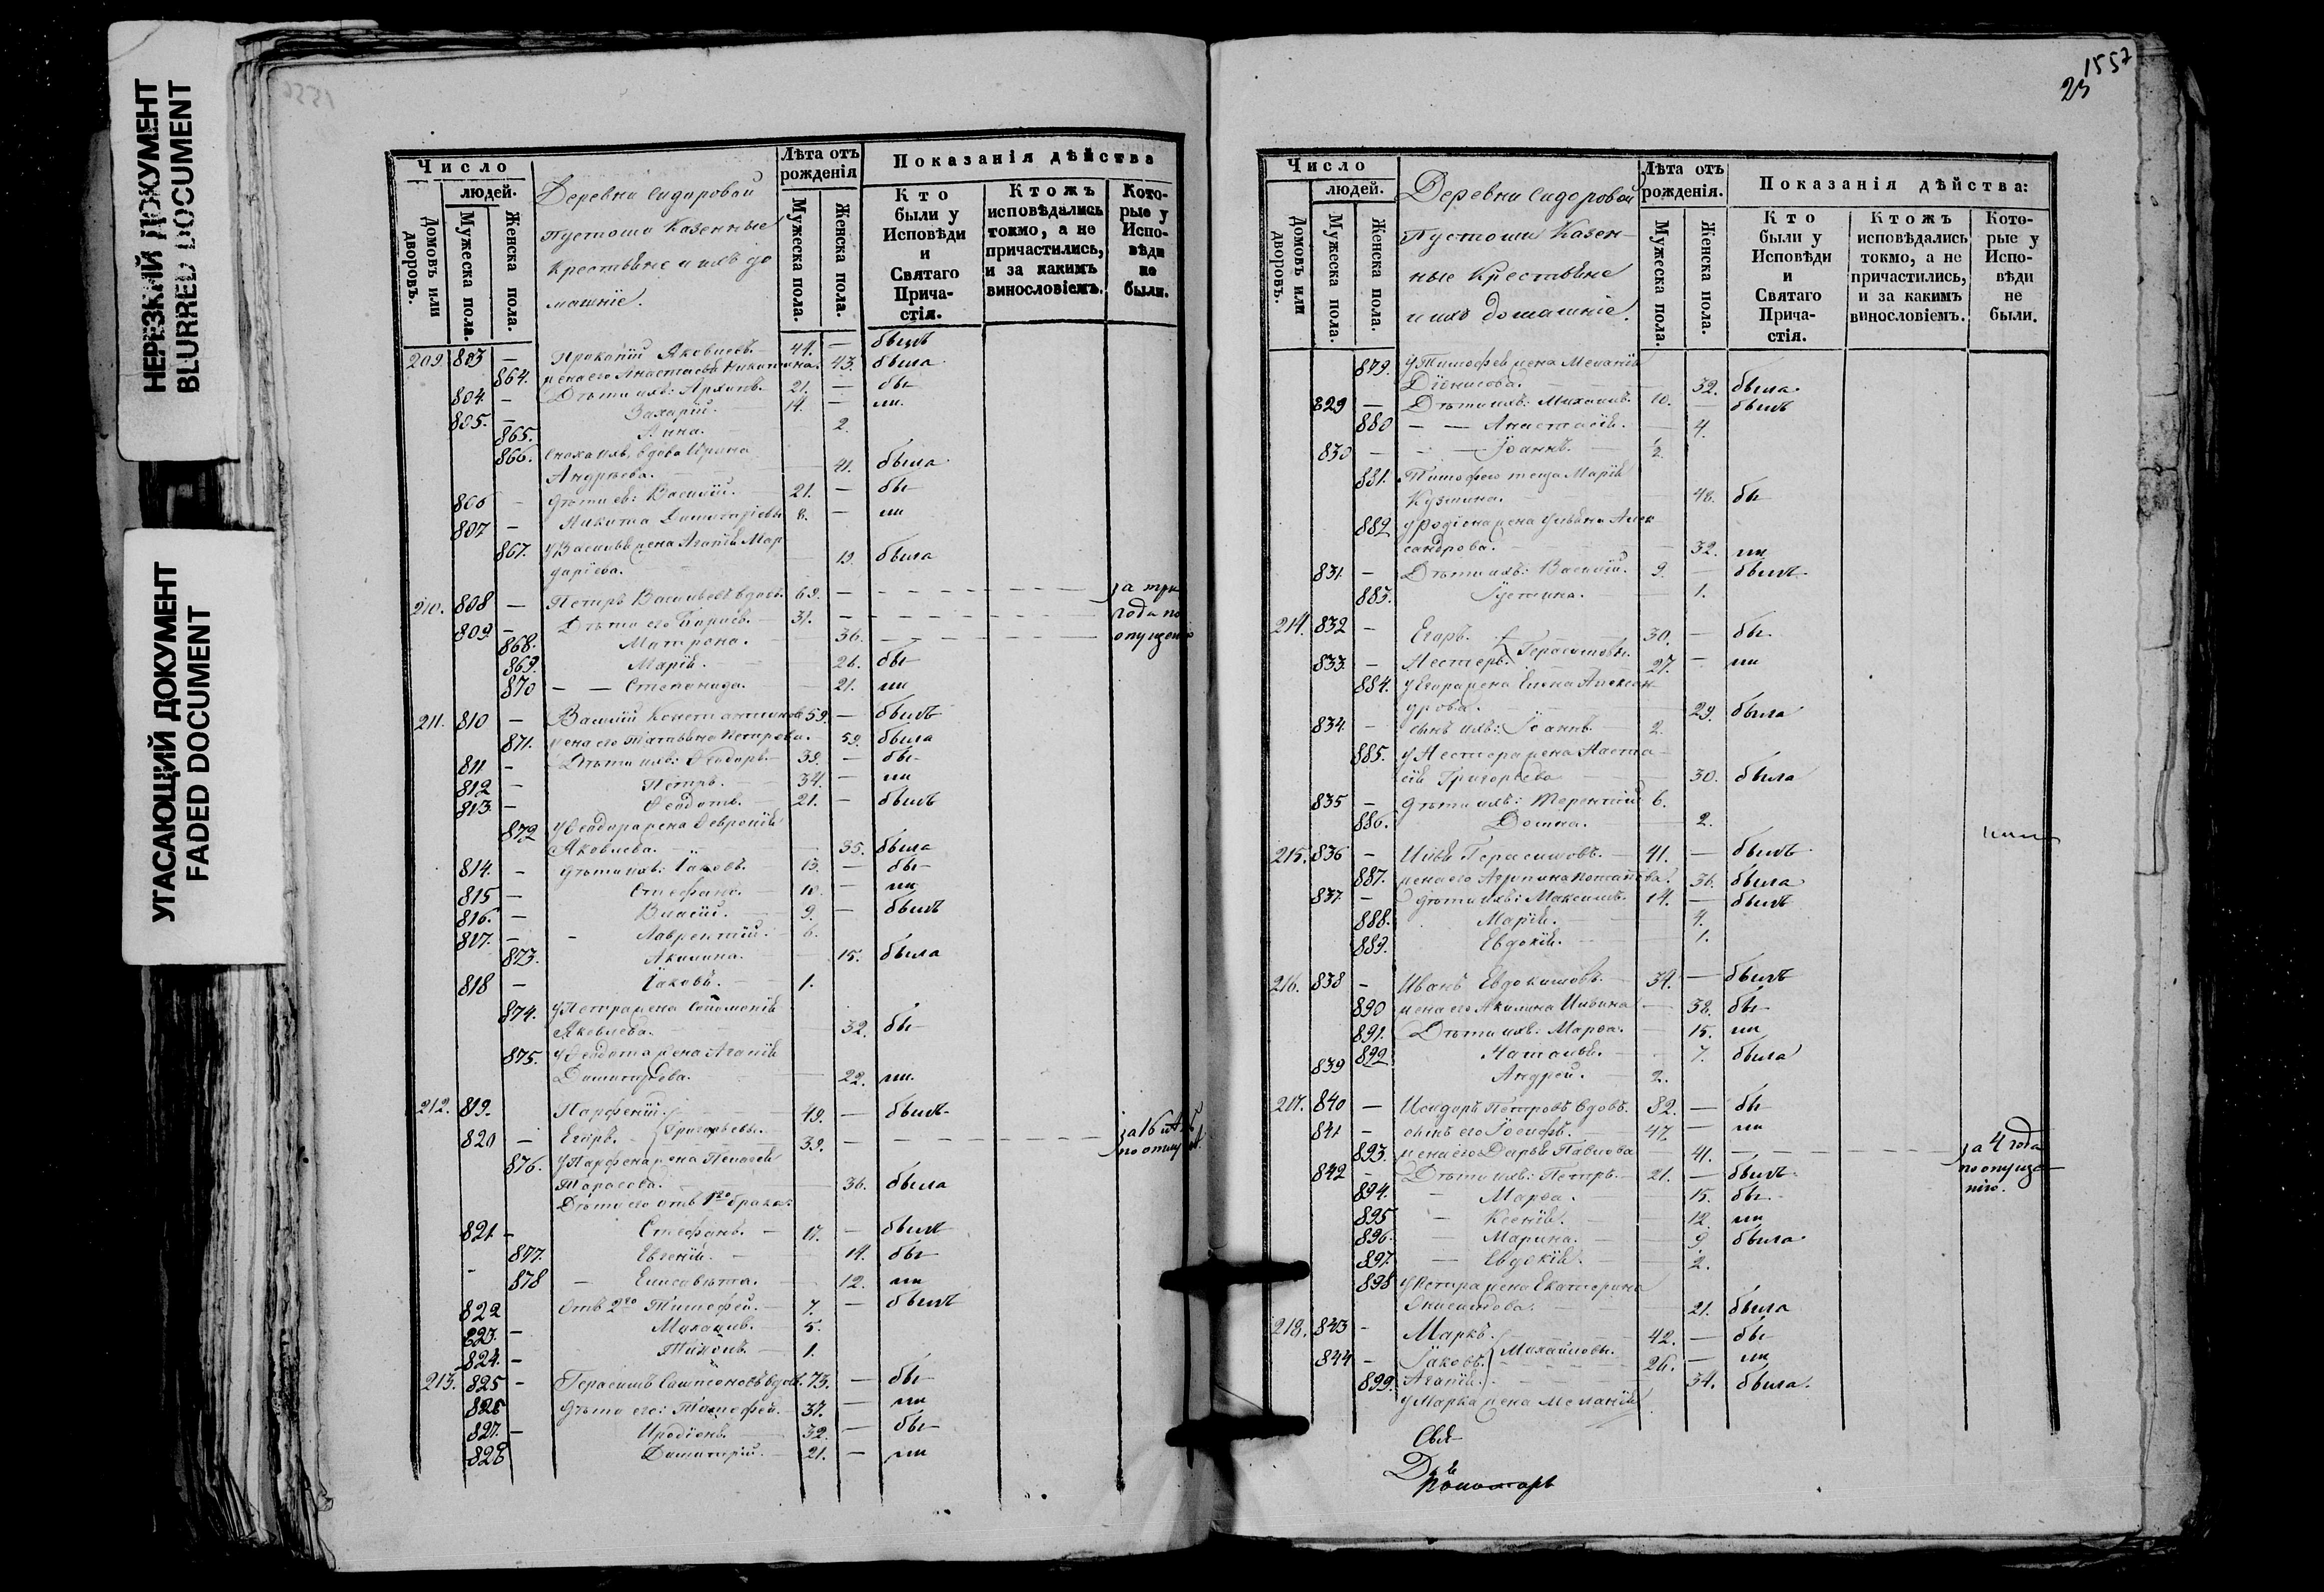 НЕРЕЗКИЙ ДОКУМЕНТ
BLURRED DOCUMENT
УГАСАЮЩИЙ ДОКУМЕНТ
FADED DOCUMENT
Число
людей.
Домовъ или дворовъ.
Мужеска пола.
Женска пола.
Деревни Сидоровой
Пустоши Казенные
Крестьяне и ихъ до
машніе.
Лѣта отъ рожденія
Мужеска пола.
Женска пола.
Показанія дѣйства
Кто были у Исповѣди и Святаго Причастія.
Ктожъ исповѣдались токмо, а не причастились, и за какимъ винословіемъ.
Которые у Исповѣди не были.
209. 803 — Прокопій Яковлевъ. 44. — былъ
864. жена его Анастасія 43. была
804. — Дѣти ихъ: Архипъ. 21. — бы
805. — Захарій. 14. — ли
865. Анна. 2.
866. Сноха ихъ, вдова Ирина
Андреева. 41. была
806 — Дѣти ея: Василій. 21. — бы
807 — Никита Димитріевы 8. — ли
867. У Василья жена Агапія Мар
даріева. 19. была
210. 808 — Петръ Васильевъ вдовъ. 69. — за три
809 — Дѣти его 31. — года по
868. Матрона. 36. — опущен
869. Марія. 26. бы
870 — — Степанида. 21. ли
211. 810 — Василій Константиновъ 59. — былъ
871. жена его Татьяна Петрова. 59. была
811 — Дѣти ихъ: Ѳеодоръ. 39. — бы
812 — Петръ. 34. — ли
813. — Ѳеодотъ. 21. — былъ
872 У Ѳеодора жена Ѳевронія
Яковлева. 35. была
814. — Дѣти ихъ: Іаковъ. 13. — бы
815 — Стефанъ. 10. — ли
816. — Власій. 9. — былъ
817. — Лаврентій. 6.
873. Акилина. 15. была
818 — Іаковъ. 1.
874. У Петра жена Соломонія
Яковлева. 32. бы
875. У Ѳеодота жена Агапія
Димитріева. 22. ли.
212. 819. Парфеній. 49. — былъ
820 — Егоръ. Григорьевы. 39. — за 16 лѣтъ
876. У Парфена жена Пелагея
Тарасова. 36. была
Дѣти его отъ 1го брака:
821 — Стефанъ. 17. — былъ
877. Евгенія. 14. бы
878 — Елисавета. 12. ли
822 Отъ 2го Тимофей. 7. — былъ
823. — Михаилъ. 5.
824. — Тихонъ. 1.
213. 825 — Герасимъ Сампсоновъ вдов. 73. — бы
826 Дѣти его: Тимофей. 37. — ли
827. — Иродіонъ. 32. — бы
828 Димитрій. 21. — ли
1557
23
Число
людей.
Домовъ или дворовъ.
Мужеска пола.
Женска пола.
Деревни Сидоровой
Пустоши Казен-
ные Крестьяне
и ихъ домашніе.
Лѣта отъ рожденія.
Мужеска пола.
Женска пола.
Показанія дѣйства:
Кто были у Исповѣди и Святаго Причастія.
Ктожъ исповѣдались токмо, а не причастились, и за какимъ винословіемъ.
Которые у Исповѣди не были.
879. У Тимофея жена Меланія
Діонисова. 32. была
829 — Дѣти ихъ: Михаилъ. 10. — былъ
880 — — Анастасія. 4.
830 — — Іоаннъ. 2.
881. Тимофею теща Марія
Кузмина. 48. бы
882 У Родіона жена Ульяна Алек
сандрова. 32. ли
831. — Дѣти ихъ: Василій. 9. — былъ
883. Іустина. 1.
214. 832 — Егоръ. 30. — бы
833. — Нестеръ. Герасимовы. 27. — ли
884. У Егора жена Елена Алексан
дрова. 29. была
834. — сынъ ихъ: Іоаннъ. 2.
885. У Нестера жена Наста
сія Григорьева 30. была
835 — Дѣти ихъ: Терентій 6.
886. Домна. 2.
215. 836 — Илья Герасимовъ. 41. — былъ
887. жена его Агрипина 36. была
837. — Дѣти ихъ: Максимъ. 14. — былъ
888. Марія. 4.
889. Евдокія. 1.
216. 838 — Иванъ Евдокимовъ. 34. — былъ
890 жена его Акилина 38. бы
891. Дѣти ихъ: Марѳа. 15. ли
892 Наталья. 7. была
839 Андрей. 2.
217. 840 — Исидоръ Петровъ вдовъ. 82. — бы
841 — сынъ его Іосифъ. 47. — ли
893. жена его Дарья Павлова 41. — за 4 года
842 — Дѣти ихъ: Петръ. 21. — былъ по опуще-
894. — Марѳа. 15. бы нію.
895 — Ксенія. 12. ли
896. — Марина. 9 была
897. — Евдокія. 2.
898 У Петра жена Екатерина
Онисимова. 21. была
218. 843 — Маркъ. 42. — бы
844 — Іаковъ. Михайловы. 26. — ли
899. Агапія. 34. была.
У Марка жена Меланія
Свя
Дья
Пономарь